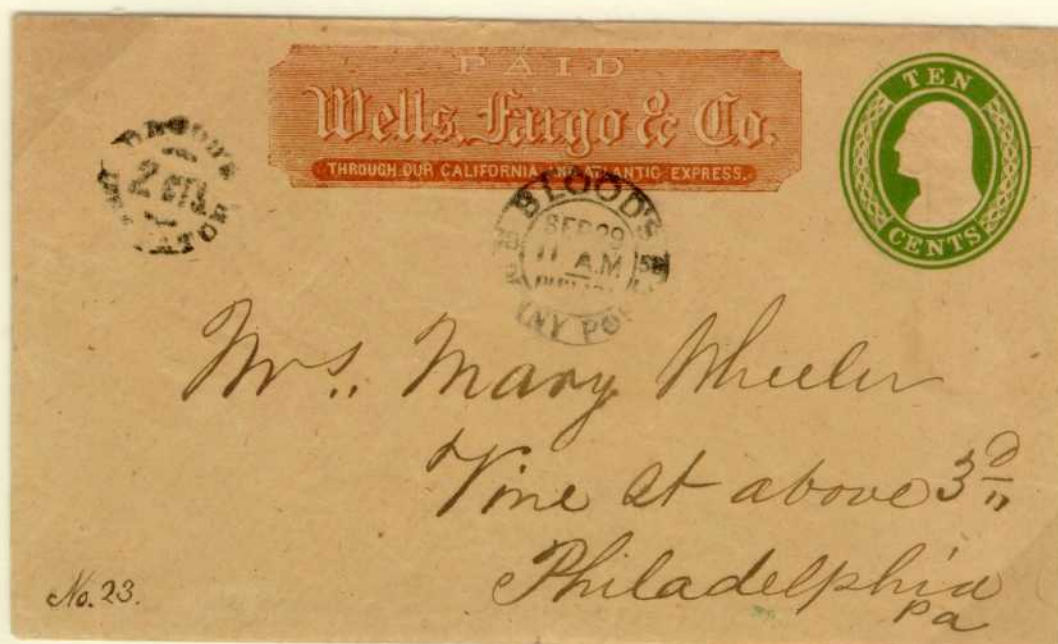 PAID
Wells, Fargo & Co.
THROUGH OUR CALIFORNIA AND ATLANTIC EXPRESS.
TEN
CENTS
2 CTS
BLOOD'S
SEP 29
11 A.M
Mrs. Mary Wheeler
Vine St above 3d
Philadelphia
Pa
No. 23.